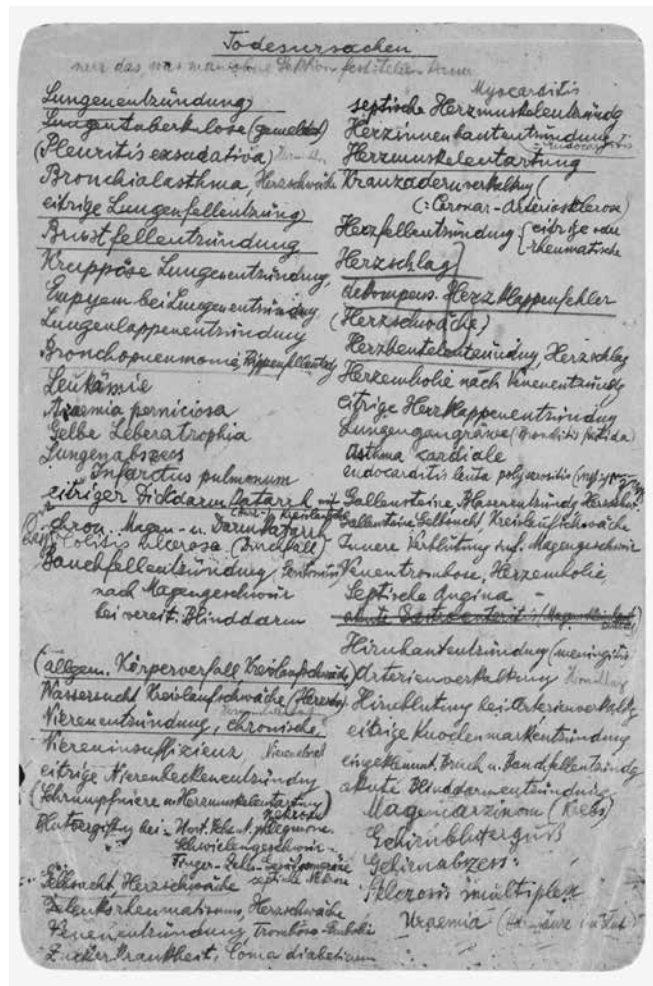 Todesursachen
nur das, was man ohne Sektion feststellen kann
Lungenentzündung
Lungentuberkulose (gemeldet)
(Pleuritis exsudativa)
Bronchialasthma, Herzschwäche
eitrige Lungenfellentzüng
Brustfellentzündung
Kruppöse Lungenentzündung,
Empyem bei Lungenentzündung
Lungenlappenentzündung
Bronchopneumonie, Rippenfellentzdg
Leukämie
Anaemia perniciosa
Gelbe Leberatrophia
Lungenabszess
Infarctus pulmonum
eitriger Dickdarm Catarrh mit
Kreislaufschw
chron. Magen- u. Darm Katarrh
Colitis ulcerosa (Durchfall)
Bauchfellentzündung, Peritonitis
nach Magengeschwür
bei vereit. Blinddarm
(allgem. Körperverfall Kreislaufschwäche)
Wassersucht Kreislaufschwäche (Herz
Nierenentzündung, chronische
Niereninsuffizienz,
eitrige Nierenbeckenentzündung
(Schrumpfniere u. Herzmuskelentartung)
Blutvergiftung bei: Phlegmone
nekrose
Schwielengeschwür
Finger- Zell- Gesäß
septische Nekrose
Gelbsucht, Herzschwäche
Gelenksrheumatismus, Herzschwäche
Venenentzündung, Trombose-Embolie
Zuckerkrankheit, Coma diabeticum
Myocarditis
septische Herzmuskelentzündg
Herzinnenhautentzündung
endocarditis
Herzmuskelentartung
Kranzadernverkalkung (
(: Coronar-Arteriosklerose)
Herzfellentzündung { eitrige oder
rheumatische
Herzschlag
dekompens. Herzklappenfehler
(Herzschwäche)
Herzbeutelentzündung, Herzschlag
Herzembolie nach Venenentzündg
eitrige Herzklappenentzündung
Lungengangräne (Bronchitis foetida)
Asthma cardiale
endocarditis lenta polyserositis
Gallensteine, Blasenentzündg Herzschw.
Gallensteine Gelbsucht, Kreislaufschwäche
Innere Verblutung inf. Magengeschwür
Venentrombose, Herzembolie,
Septische Angina -
akute Gastroenteritis
Hirnhautentzündung (meningitis)
Arterienverkalkung Hirnschlag
Hirnblutung bei Arterienverkalkg
eitrige Knochenmarkentzündung
eingeklemmt. Bruch u. Bauchfellentzündg
akute Blinddarmentzündung
Magenkarzinom (Krebs)
Gehirnbluterguß
Gehirnabszess:
Sklerosis multiplex
Uraemia (Harnsäure im Blut)